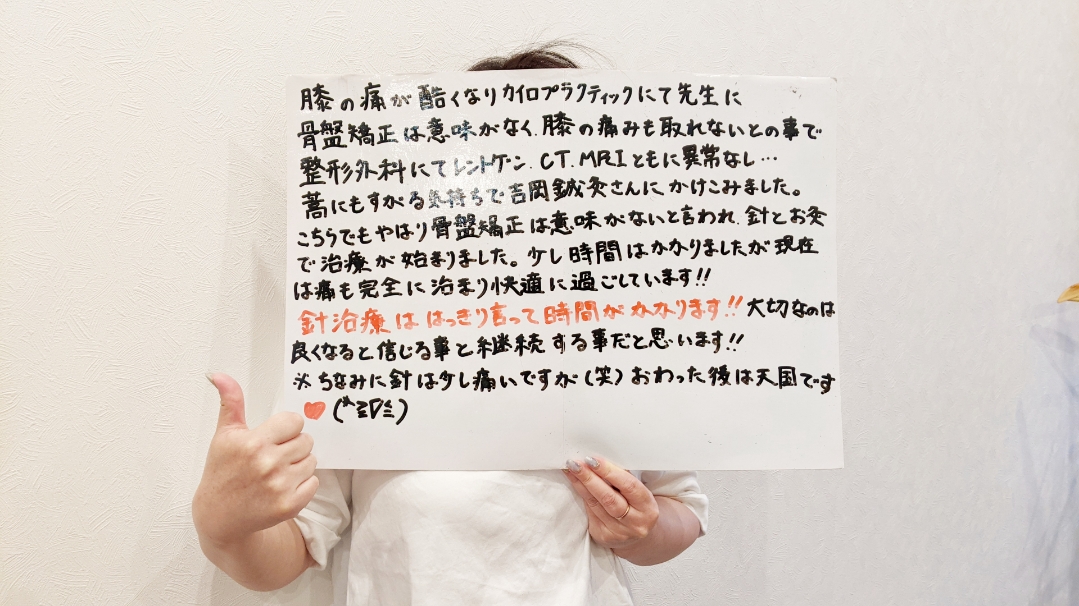 膝の痛が酷くなりカイロプラクティックにて先生に
骨盤矯正は意味がなく、膝の痛みも取れないとの事で
整形外科にてレントゲン、CT、MRIともに異常なし…
藁にもすがる気持ちで吉岡鍼灸さんに、かけこみました。
こちらでもやはり骨盤矯正は意味がないと言われ、針とお灸
で治療が始まりました。少し時間はかかりましたが現在
は痛も完全に治まり快適に過ごしています!!
針治療ははっきり言って時間がかかります!!大切なのは
良くなると信じる事と継続する事だと思います!!
※ちなみに針は少し痛いですが(笑)おわった後は天国です
♥(*≧∇≦)